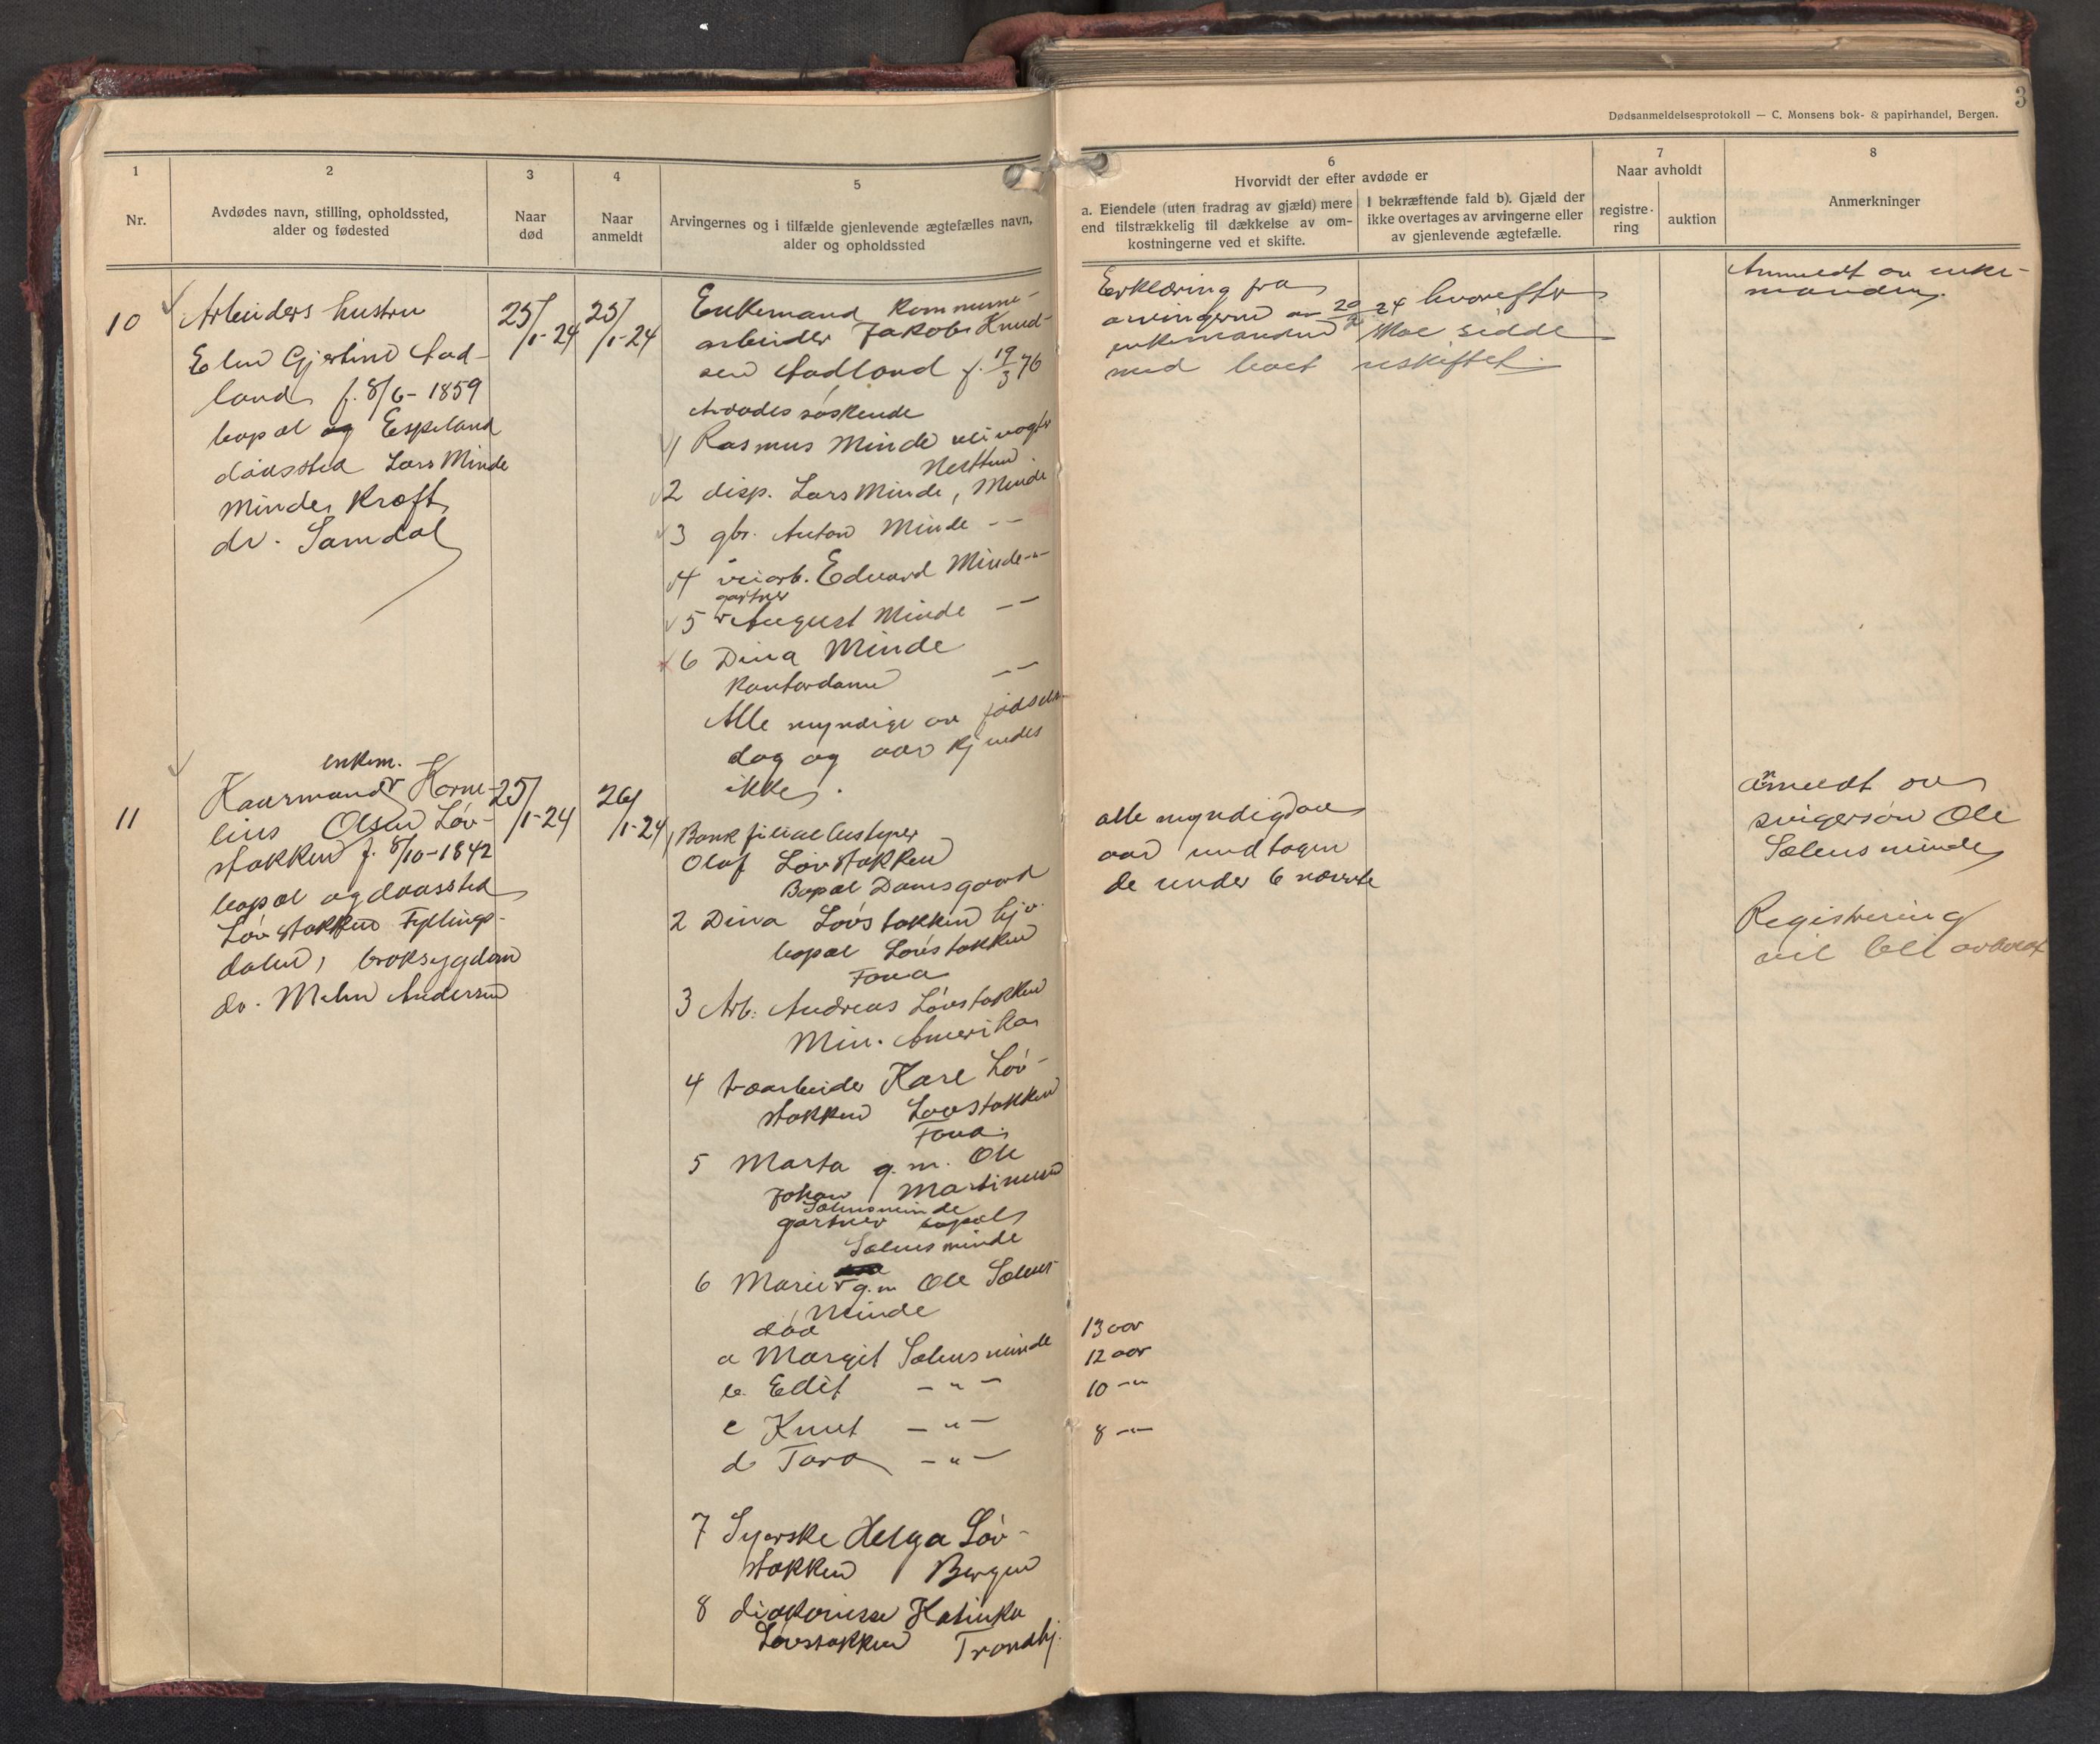 3
Dødsanmeldelsesprotokoll — C. Monsens bok- & papirhandel, Bergen.
1
Nr.
2
Avdødes navn, stilling, opholdssted,
alder og fødested
3
Naar
død
4
Naar
anmeldt
5
Arvingernes og i tilfælde gjenlevende ægtefælles navn,
alder og opholdssted
6
Hvorvidt der efter avdøde er
a. Eiendele (uten fradrag av gjæld) mere
end tilstrækkelig til dækkelse av om-
kostningerne ved et skifte.
I bekræftende fald b). Gjæld der
ikke overtages av arvingerne eller
av gjenlevende ægtefælle.
7
Naar avholdt
registre-
ring
auktion
8
Anmerkninger
10
Arbeiders hustru
Elen Gjertine Aad-
land f. 8/6-1859
bopæl og Espeland
dødssted Lars Minde
Minde, Kræft,
dr. Samdal
25/
1-24
25/
1-24
Enkemand Kommune-
arbeider Jakob Knud-
sen Aadland f. 19/3 76
Avdødes søskende
1 Rasmus Minde veivogter
Nesttun
2 disp. Lars Minde, Minde
3 gbr. Anton Minde - -
4 veiarb. Edvard Minde -"-
gartner
5 August Minde - -
6 Dina Minde
Kontordame - -
Alle myndige og fødsels-
dag og aar kjendes
ikke.
Erklæring fra
arvingerne av 20/2 24 hvorefter
enkemanden maa sidde
med boet uskiftet.
Anmeldt av enke-
manden.
11
enkem.
Kaarmand Korne-
lius Olsen Løv-
stakken f. 8/10-1842
bopæl og dødssted
Løvstakken Fyllings-
dalen, broksygdom
dr. Mohn Andersen
25/
1-24
26/
1-24
1 Bankfilialbestyrer
Olaf Løvstakken
Bopæl Damsgaard
2 Dina Løvstakken hjv.
bopæl Løvstakken
Fana
3 Arb. Andreas Løvstakken
Min. Amerika
4 træarbeider Karl Løv-
stakken Løvstakken
Fana.
5 Marta g. m. Ole
Johan Martinusen
Sælensminde
gartner bopæl
Sælensminde
6 Marie g.m Ole Sælens-
minde
død
a Margit Sælensminde
b. Edit - " -
c Knut - " -
d Tora - " -
7 Syerske Helga Løv-
stakken Bergen
8 diakonisse Hatinka
Løvstakken Trondhj.
alle myndig
aar undtagen
de under 6 nævnte
13 aar
12 aar
10 -"
8 -"-
anmeldt av
svigersøn Ole
Sælensminde
Registrering
vil bli avholdt